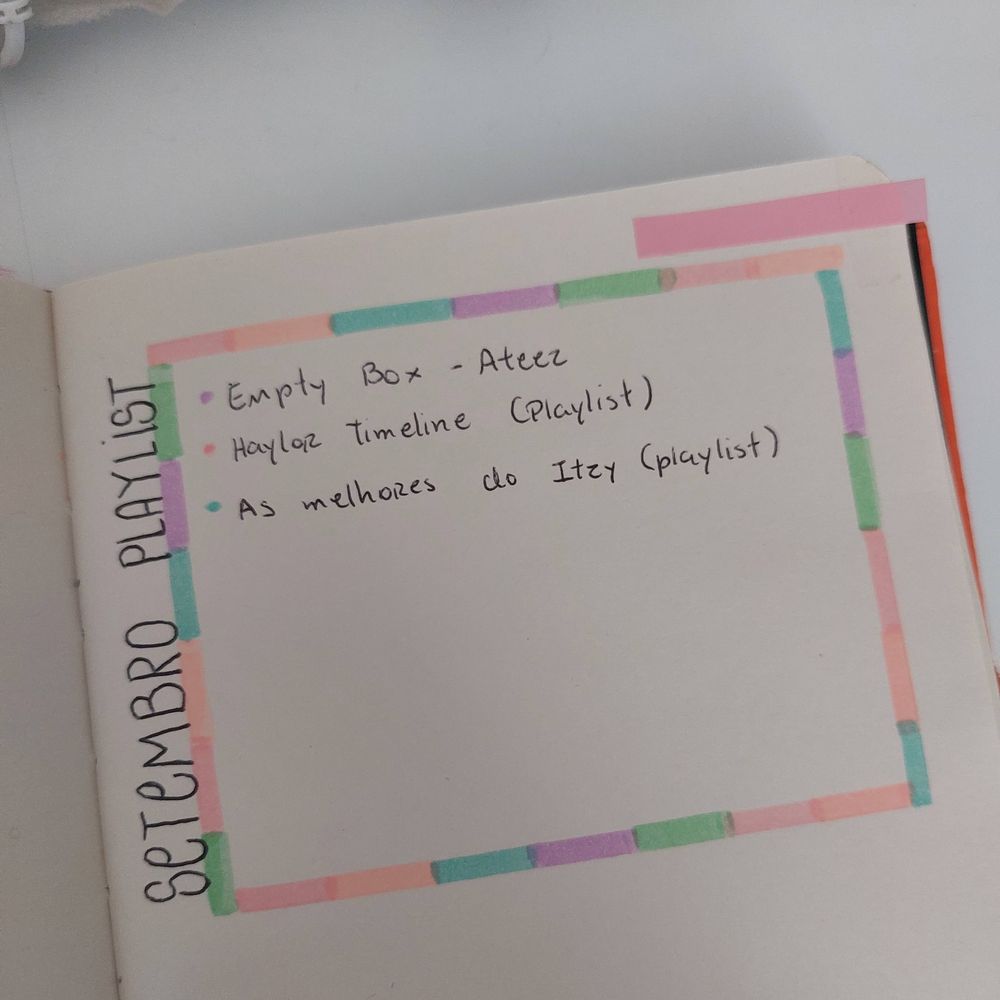 SETEMBRO PLAYLIST
Empty Box - Ateez
Haylor timeline (Playlist)
As melhores do Itzy (playlist)